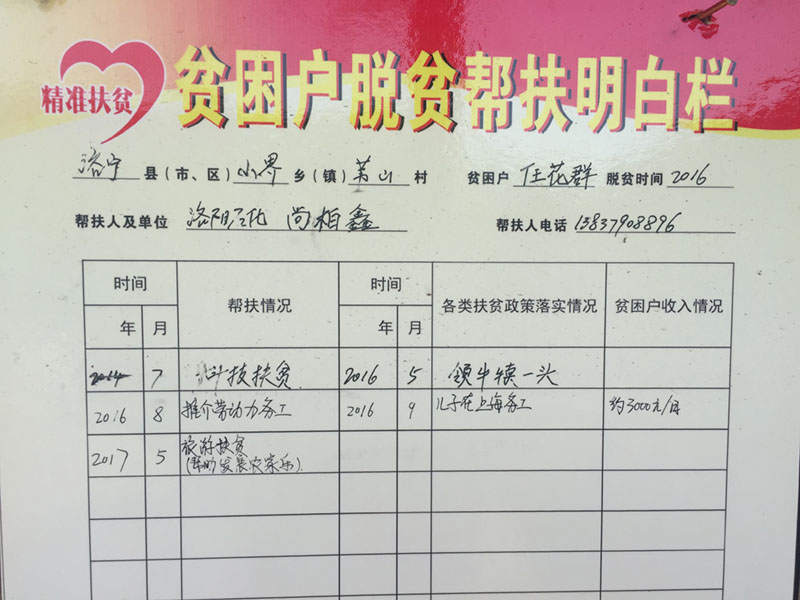 精准扶贫
贫困户脱贫帮扶明白栏
洛宁 县(市、区) 小界 乡(镇) 苇山 村 贫困户 任花群 脱贫时间 2016
帮扶人及单位 洛阳石化 尚柏鑫 帮扶人电话 13837908896
时间 帮扶情况 时间 各类扶贫政策落实情况 贫困户收入情况
年 月 年 月
7 扶贫 2016 5 领牛犊一头
2016 8 推介劳动力务工 2016 9 儿子在上海务工 约3000元/月
2017 5 旅游扶贫
(帮助发展农家乐)